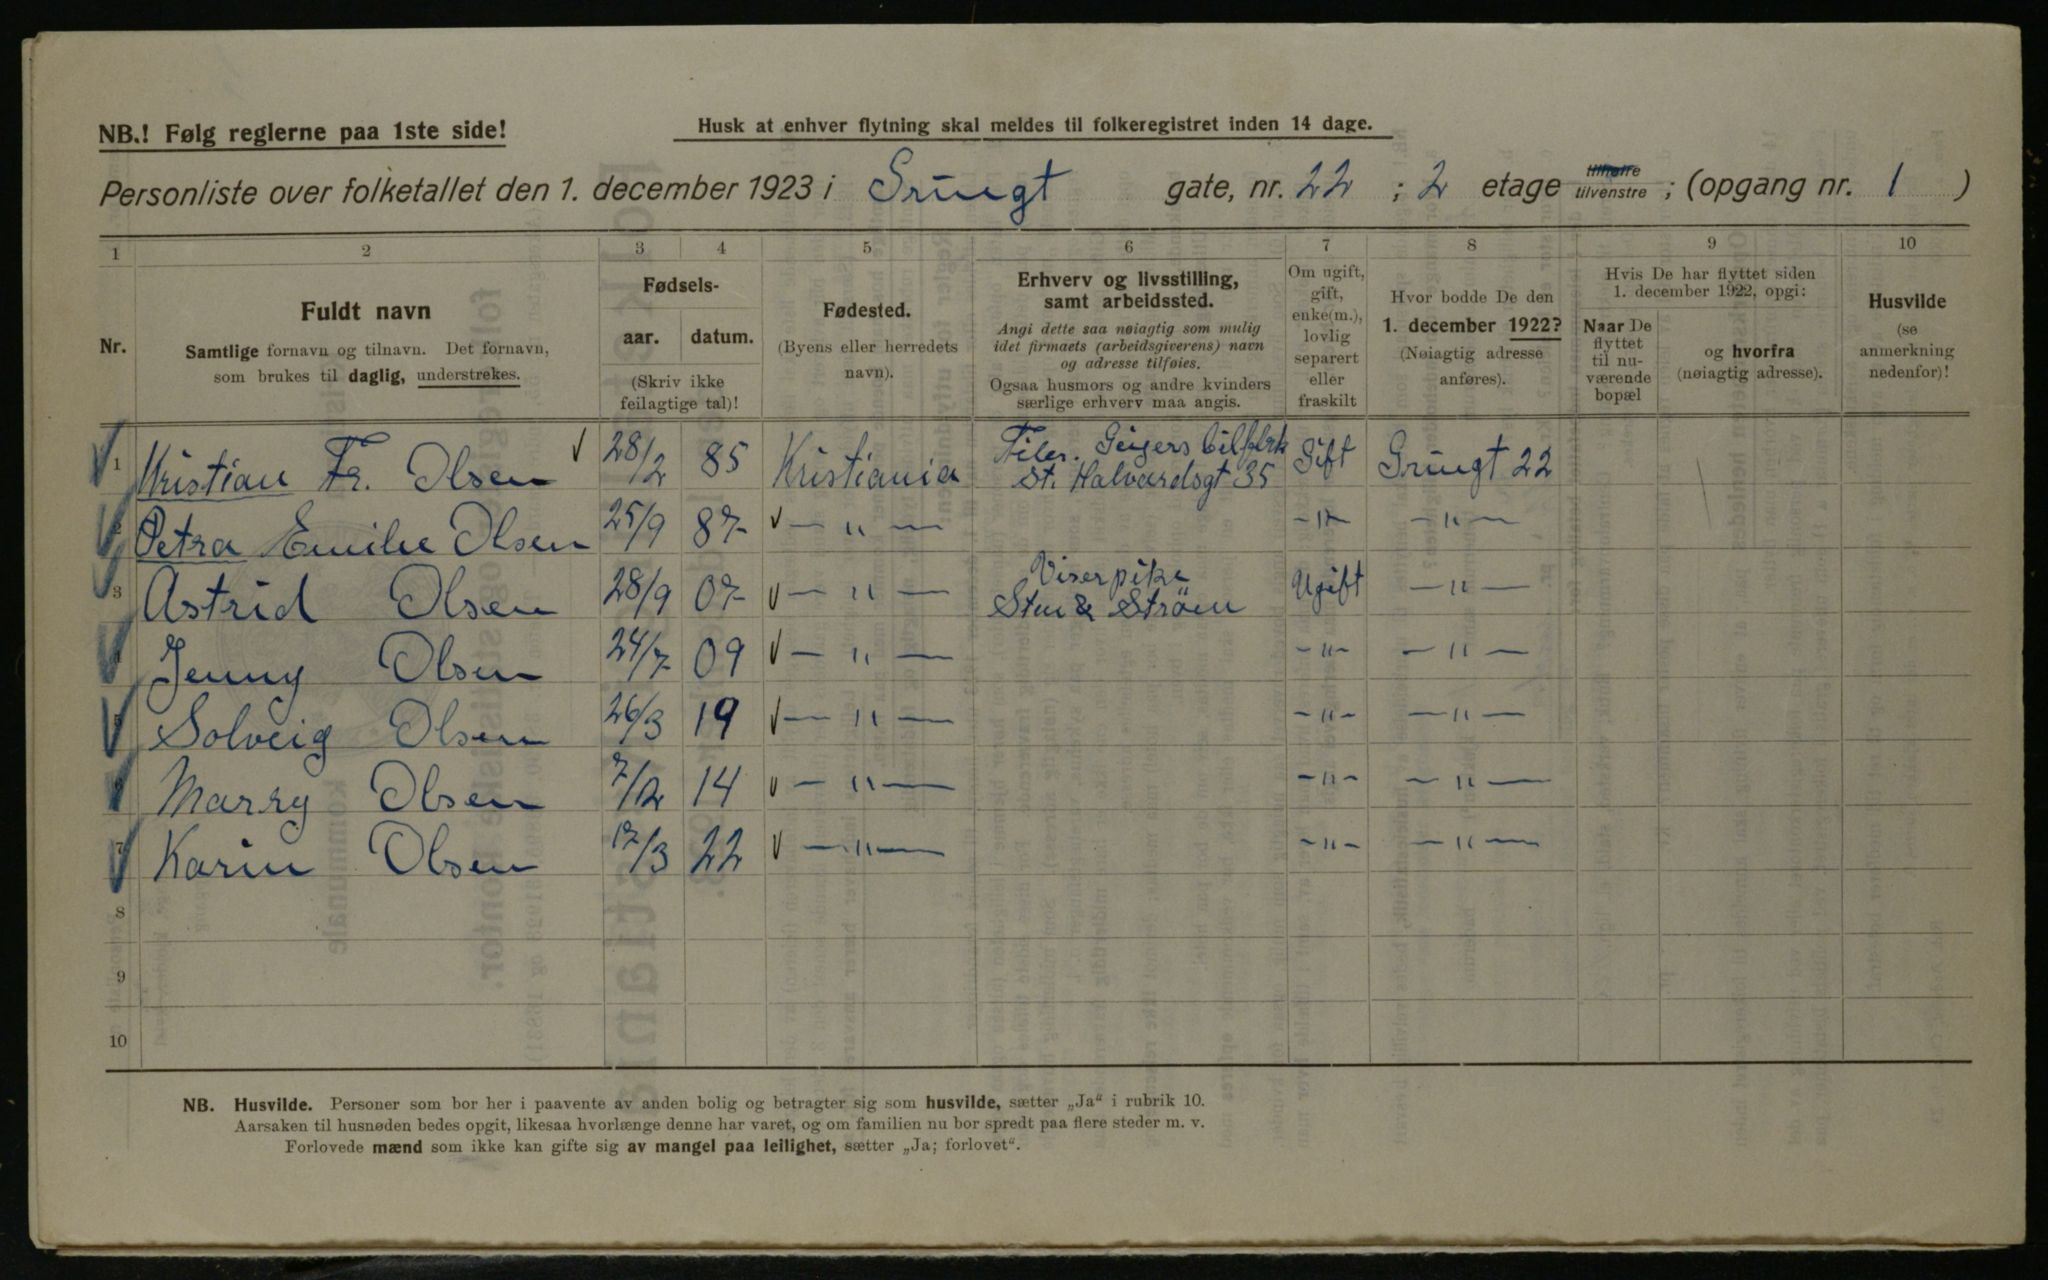 NB.! Følg reglerne paa 1ste side!
Husk at enhver flytning skal meldes til folkeregistret inden 14 dage.
Personliste over folketallet den 1. december 1923 i Grüngt gate, nr. 22 ; 2 etage tilhøire tilvenstre ; (opgang nr. 1 )
1 2 3 4 5 6 7 8 9 10
Nr.
Fuldt navn
Samtlige fornavn og tilnavn. Det fornavn,
som brukes til daglig, understrekes.
Fødsels-
aar. datum.
(Skriv ikke
feilagtige tal)!
Fødested.
(Byens eller herredets
navn).
Erhverv og livsstilling,
samt arbeidssted.
Angi dette saa nøiagtig som mulig
idet firmaets (arbeidsgiverens) navn
og adresse tilføies.
Ogsaa husmors og andre kvinders
særlige erhverv maa angis.
Om ugift,
gift,
enke(m.),
lovlig
separert
eller
fraskilt
Hvor bodde De den
1. december 1922?
(Nøiagtig adresse
anføres).
Hvis De har flyttet siden
1. december 1922, opgi:
Naar De
flyttet
til nu-
værende
bopæl
og hvorfra
(nøiagtig adresse).
Husvilde
(se
anmerkning
nedenfor)!
1 Kristian Fr. Olsen 28/2 85 Kristiania Filer. Geijers bilfbrk St. Halvardsgt 35 Gift Grüngt 22
2 Petra Emilie Olsen 25/9 87 — " — -"- — " —
3 Astrid Olsen 28/9 07 — " — Viserpike Sten & Strøm Ugift — " —
4 Jenny Olsen 24/7 09 — " — -"- — " —
5 Solveig Olsen 26/3 19 — " — -"- — " —
6 Marry Olsen 7/12 14 — " — -"- — " —
7 Karin Olsen 17/3 22 — " — -"- — " —
8
9
10
NB. Husvilde. Personer som bor her i paavente av anden bolig og betragter sig som husvilde, sætter „Ja“ i rubrik 10.
Aarsaken til husnøden bedes opgit, likesaa hvorlænge denne har varet, og om familien nu bor spredt paa flere steder m. v.
Forlovede mænd som ikke kan gifte sig av mangel paa leilighet, sætter „Ja; forlovet“.